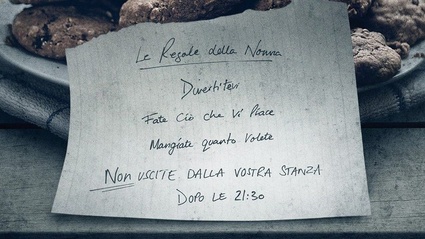 Le Regole della Nonna
Divertitevi
Fate Ciò che Vi Piace
Mangiate quanto Volete
NON USCITE DALLA VOSTRA STANZA
DOPO LE 21:30